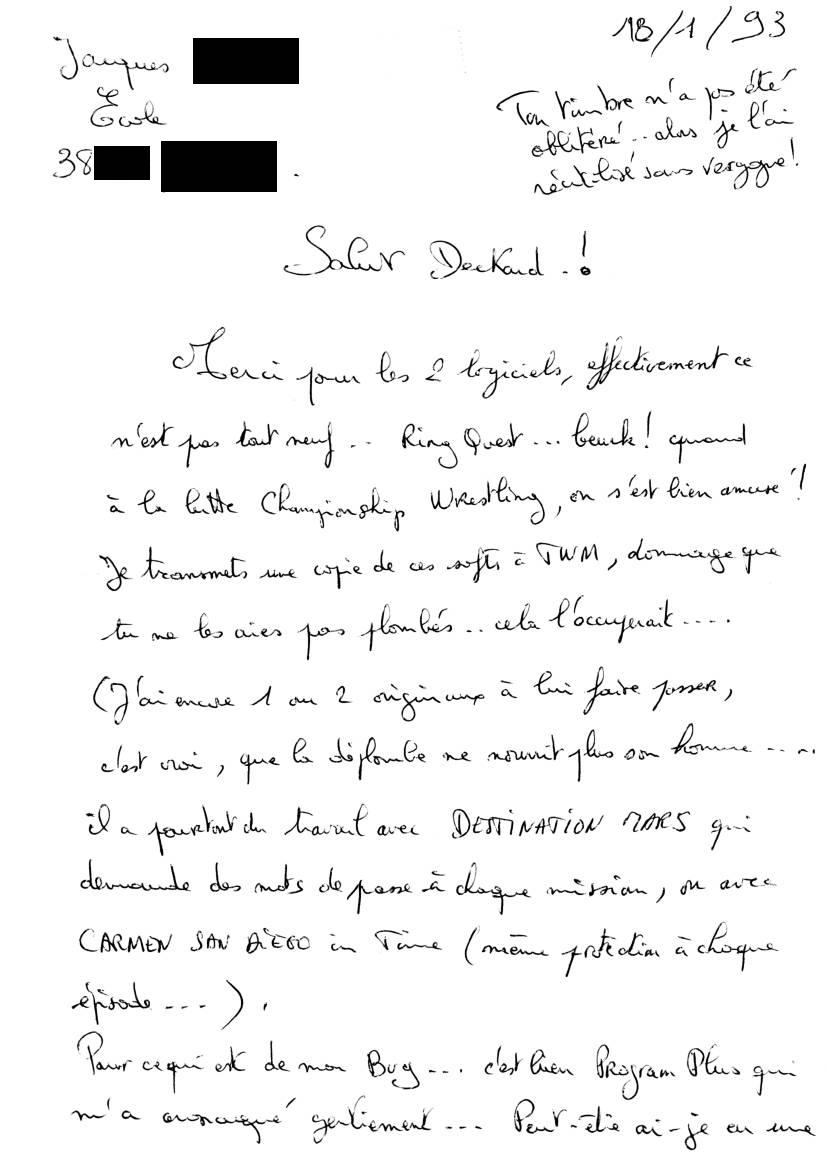 18/1/93
Jacques
École
38 .
Ton timbre n'a pas été
oblitéré .. alors je l'ai
réutilisé sans vergogne !
Salut Deckard . !
Merci pour les 2 logiciels, effectivement ce
n'est pas tout neuf .. Ring Quest ... beurk ! quand
à la lutte Championship WRestling, on s'est bien amusé !
Je transmets une copie de ces softs à TWM, dommage que
tu ne les aies pas plombés .. cela l'occuperait ....
(J'ai encore 1 ou 2 originaux à lui faire passer,
c'est vrai, que la déplombe ne nourrit plus son homme ....
il a pourtant du travail avec DESTINATION MARS qui
demande des mots de passe à chaque mission, ou avec
CARMEN SAN DIEGO in Time (même protection à chaque
épisode ...) .
Pour ce qui est de mon Bug ... c'est bien Program Plus qui
m'a arnaqué gentiement ... Peut-être ai-je eu une